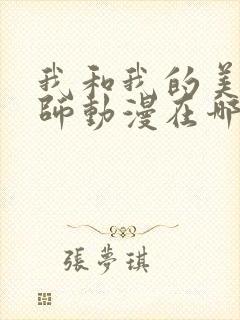 我和我的美
師動漫在哪
張夢琪